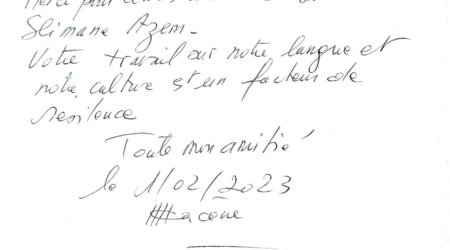 Merci pour
Slimane Azem.
Votre travail sur notre langue et
notre culture est un facteur de
resilence
Toute mon amitié
le 1/02/2023